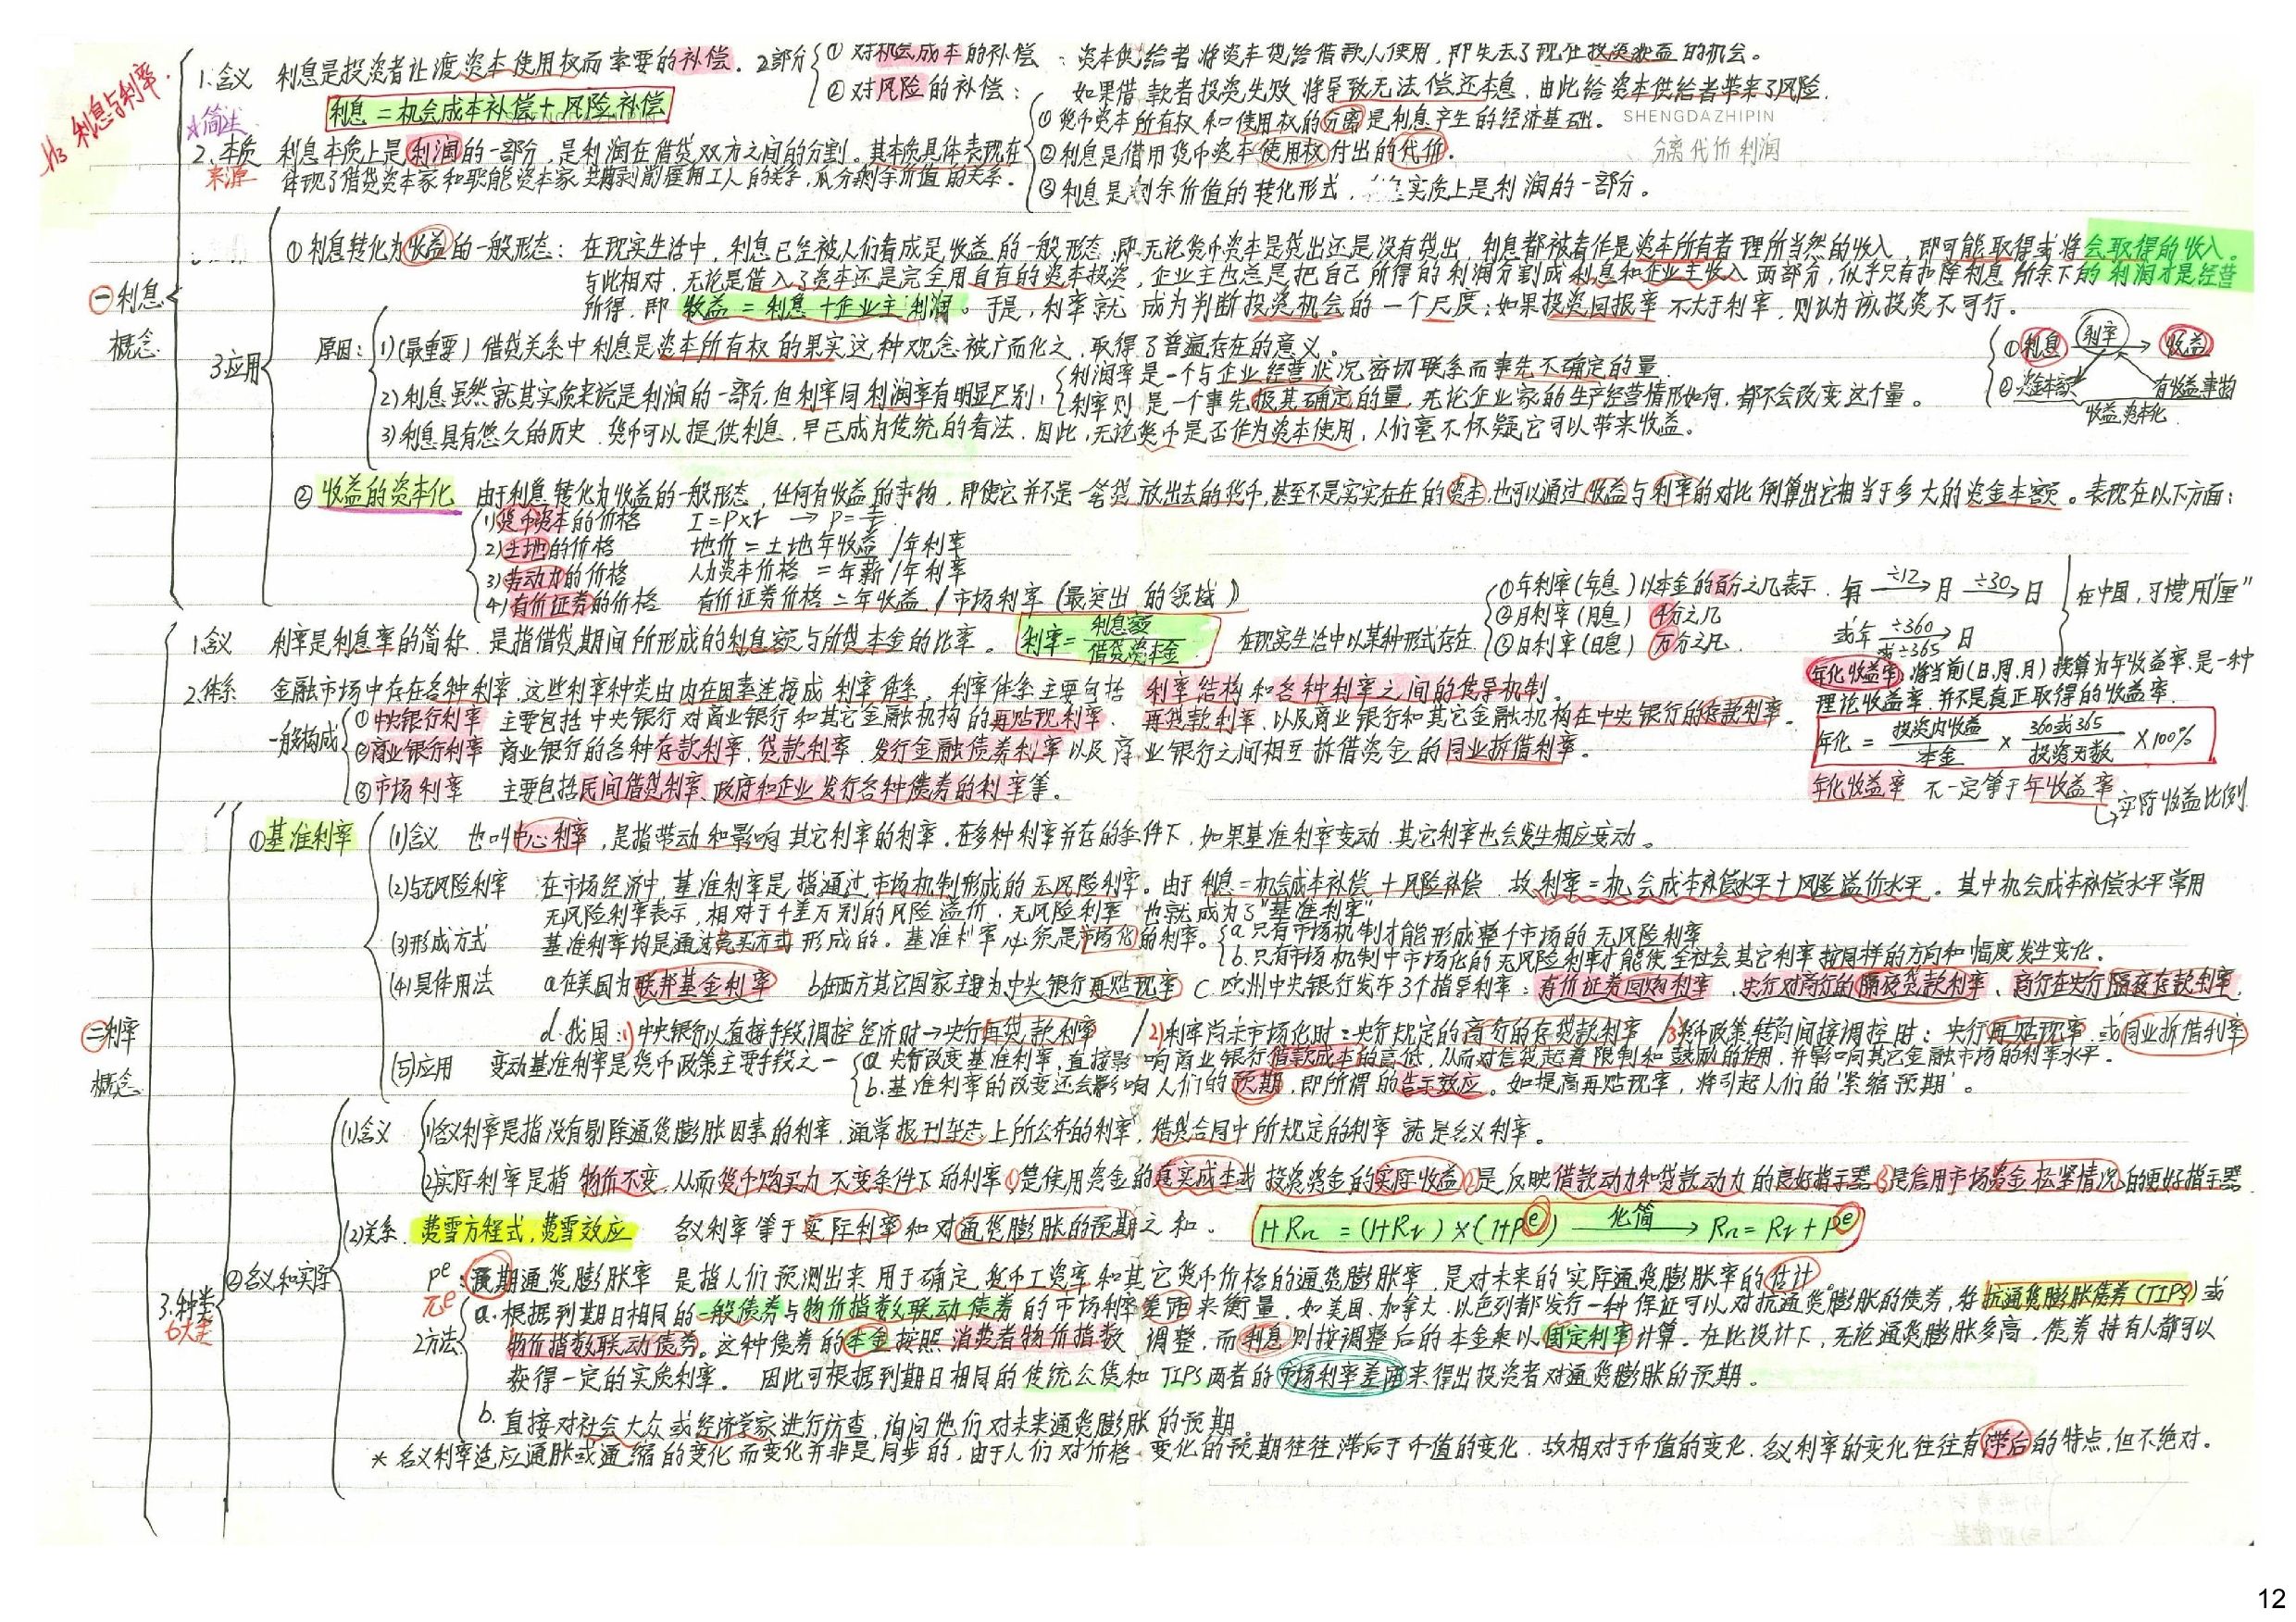 h3 利息与利率.
㊀利息概念
1.含义 利息是投资者让渡资本使用权而索要的补偿. 2部分
①对机会成本的补偿：资本供给者将资本贷给借款人使用，即失去了现在投资收益的机会。
②对风险的补偿：如果借款者投资失败将导致无法偿还本息，由此给资本供给者带来了风险.
利息=机会成本补偿+风险补偿
☆简述
2.本质 来源 利息本质上是利润的一部分，是利润在借贷双方之间的分割。其本质具体表现在
体现了借贷资本家和职能资本家共同剥削雇用工人的关系，瓜分剩余价值的关系.
①货币资本所有权和使用权的分离是利息产生的经济基础.
SHENGDAZHIPIN
②利息是借用货币资本使用权付出的代价.
分离 代价 利润
③利息是剩余价值的转化形式，实质上是利润的一部分。
3.应用
①利息转化为收益的一般形态：在现实生活中，利息已经被人们看成是收益的一般形态，即无论货币资本是贷出还是没有贷出，利息都被看作是资本所有者理所当然的收入，即可能取得或将会取得的收入.
与此相对，无论是借入了资本还是完全用自有的资本投资，企业主也总是把自己所得的利润分割成利息和企业主收入两部分，似乎只有扣除利息所余下的利润才是经营
所得，即 收益=利息+企业主利润。于是，利率就成为判断投资机会的一个尺度：如果投资回报率不大于利率，则认为该投资不可行。
原因：1)(最重要) 借贷关系中利息是资本所有权的果实这种观念被广而化之，取得了普遍存在的意义。
2)利息虽然就其实质来说是利润的一部分，但利率同利润率有明显区别：
利润率是一个与企业经营状况密切联系而事先不确定的量.
利率则是一个事先极其确定的量，无论企业家的生产经营情形如何，都不会改变这个量。
3)利息具有悠久的历史，货币可以提供利息，早已成为传统的看法，因此，无论货币是否作为资本使用，人们毫不怀疑它可以带来收益。
①利息 利率→ 收益
②资本额 有收益事物
收益资本化
②收益的资本化 由于利息转化为收益的一般形态，任何有收益的事物，即使它并不是一笔贷放出去的货币，甚至不是实实在在的资本，也可以通过收益与利率的对比倒算出它相当于多大的资金本额。表现在以下方面：
1)货币资本的价格 I=P×r → P=I/r
2)土地的价格 地价=土地年收益/年利率
3)劳动力的价格 人力资本价格=年薪/年利率
4)有价证券的价格 有价证券价格=年收益/市场利率(最突出的领域)
㊁利率概念
1.含义 利率是利息率的简称，是指借贷期间所形成的利息额与所贷本金的比率。 利率=利息额/借贷资本金 在现实生活中以某种形式存在
①年利率(年息)以本金的百分之几表示.
②月利率(月息) 千分之几
③日利率(日息) 万分之几.
年 ÷12→ 月 ÷30→ 日
或年 ÷360 或÷365→ 日
在中国，习惯用"厘"
年化收益率：将当前(日、周、月)换算为年收益率，是一种
理论收益率，并不是真正取得的收益率.
年化=投资内收益/本金×360或365/投资天数×100%
年化收益率 不一定等于年收益率
↳实际收益比例
2.体系 金融市场中存在各种利率，这些利率种类由内在因素连接成利率体系。利率体系主要包括 利率结构和各种利率之间的传导机制。
一般构成
①中央银行利率 主要包括中央银行对商业银行和其它金融机构的再贴现利率、再贷款利率，以及商业银行和其它金融机构在中央银行的存款利率.
②商业银行利率 商业银行的各种存款利率、贷款利率、发行金融债券利率以及商业银行之间相互拆借资金的同业拆借利率。
③市场利率 主要包括民间借贷利率、政府和企业发行各种债券的利率等。
3.种类 6大类
①基准利率
(1)含义 也叫中心利率，是指带动和影响其它利率的利率，在多种利率并存的条件下，如果基准利率变动，其它利率也会发生相应变动。
(2)与无风险利率 在市场经济中，基准利率是指通过市场机制形成的无风险利率。由于利息=机会成本补偿+风险补偿 故利率=机会成本补偿水平+风险溢价水平。其中机会成本补偿水平常用
无风险利率表示，相对于千差万别的风险溢价，无风险利率也就成为了"基准利率"
(3)形成方式 基准利率均是通过竞买方式形成的。基准利率必须是市场化的利率。
a.只有市场机制才能形成整个市场的无风险利率
b.只有市场机制中市场化的无风险利率才能使全社会其它利率按同样的方向和幅度发生变化.
(4)具体用法 a.在美国为联邦基金利率 b.在西方其它国家主要为中央银行再贴现率 c.欧洲中央银行发布3个指导利率：有价证券回购利率、央行对商行的隔夜贷款利率、商行在央行隔夜存款利率.
d.我国：1)中央银行以直接手段调控经济时→央行再贷款利率 / 2)利率尚未市场化时：央行规定的商行的存贷款利率 / 3)货币政策转向间接调控时：央行再贴现率 或同业拆借利率
(5)应用 变动基准利率是货币政策主要手段之一
a.央行改变基准利率，直接影响商业银行借款成本的高低，从而对信贷起着限制和鼓励的作用，并影响其它金融市场的利率水平.
b.基准利率的改变还会影响人们的预期，即所谓的告示效应。如提高再贴现率，将引起人们的'紧缩预期'。
②名义和实际
(1)含义 1)名义利率是指没有剔除通货膨胀因素的利率，通常报刊杂志上所公布的利率，借贷合同中所规定的利率就是名义利率。
2)实际利率是指 物价不变，从而货币购买力不变条件下的利率 ①是使用资金的真实成本或投资资金的实际收益 ②是反映借款动力和贷款动力的良好指示器 ③是信用市场资金松紧情况的更好指示器
(2)关系. 费雪方程式，费雪效应 名义利率等于实际利率和对通货膨胀的预期之和. 1+Rn=(1+Rr)×(1+Pe) 化简→ Rn=Rr+Pe
Pe πe：预期通货膨胀率 是指人们预测出来用于确定货币工资率和其它货币价格的通货膨胀率，是对未来的实际通货膨胀率的估计
2方法
a.根据到期日相同的一般债券与物价指数联动债券的市场利率差距来衡量. 如美国、加拿大、以色列都发行一种保证可以对抗通货膨胀的债券，称抗通货膨胀债券(TIPS)或
物价指数联动债券。这种债券的本金按照消费者物价指数调整，而利息则按调整后的本金乘以固定利率计算。在此设计下，无论通货膨胀多高，债券持有人都可以
获得一定的实质利率。 因此可根据到期日相同的传统公债和TIPS两者的市场利率差距来得出投资者对通货膨胀的预期。
b.直接对社会大众或经济学家进行访查，询问他们对未来通货膨胀的预期.
* 名义利率适应通胀或通缩的变化而变化并非是同步的，由于人们对价格变化的预期往往滞后于币值的变化，故相对于币值的变化，名义利率的变化往往有滞后的特点，但不绝对.
12